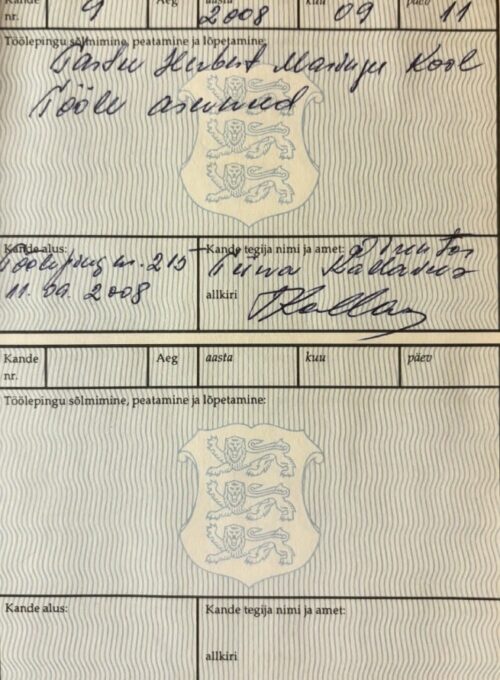 Kande nr. 9 Aeg 2008 kuu 09 päev 11
Töölepingu sõlmimine, peatamine ja lõpetamine:
Tartu Herbert Masingu Kool
Tööle asunud
Kande alus: Kande tegija nimi ja amet:
Tööleping nr. 215
11. 09. 2008
Tiina Kallavus
allkiri
Kande nr. Aeg aasta kuu päev
Töölepingu sõlmimine, peatamine ja lõpetamine:
Kande alus: Kande tegija nimi ja amet:
allkiri